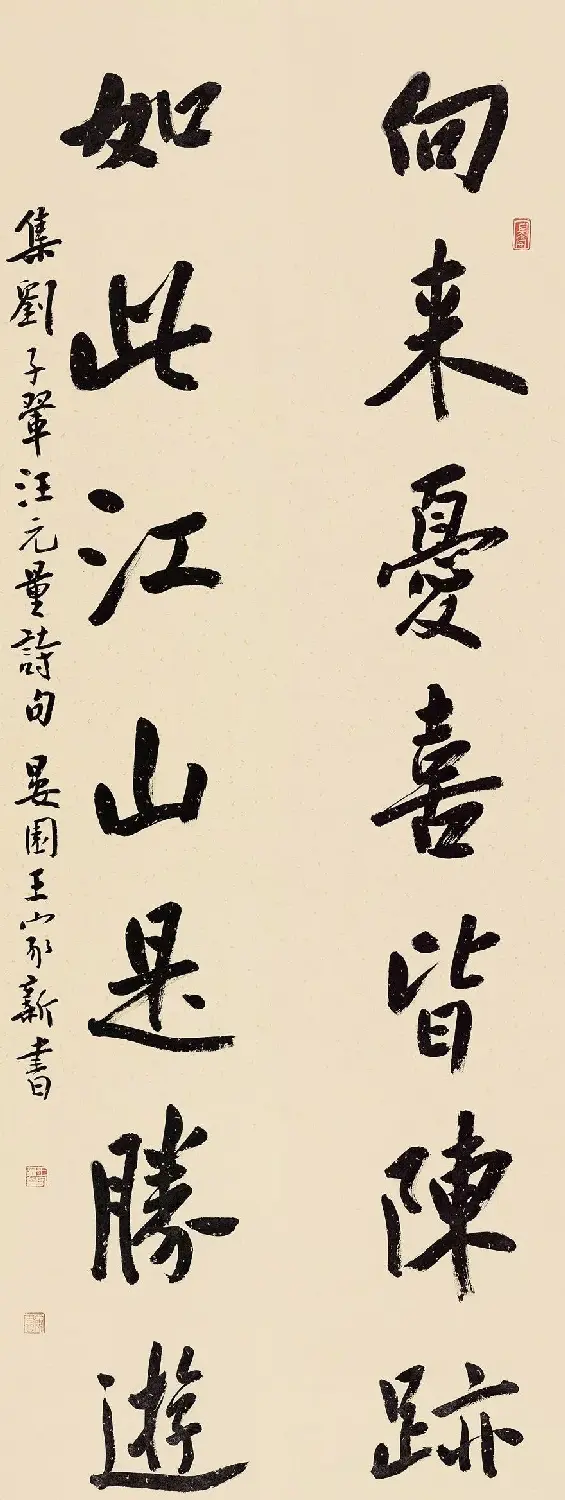 向来憂喜皆陳跡
如此江山是勝遊
集劉子翬汪元量詩句 晏園王家新書